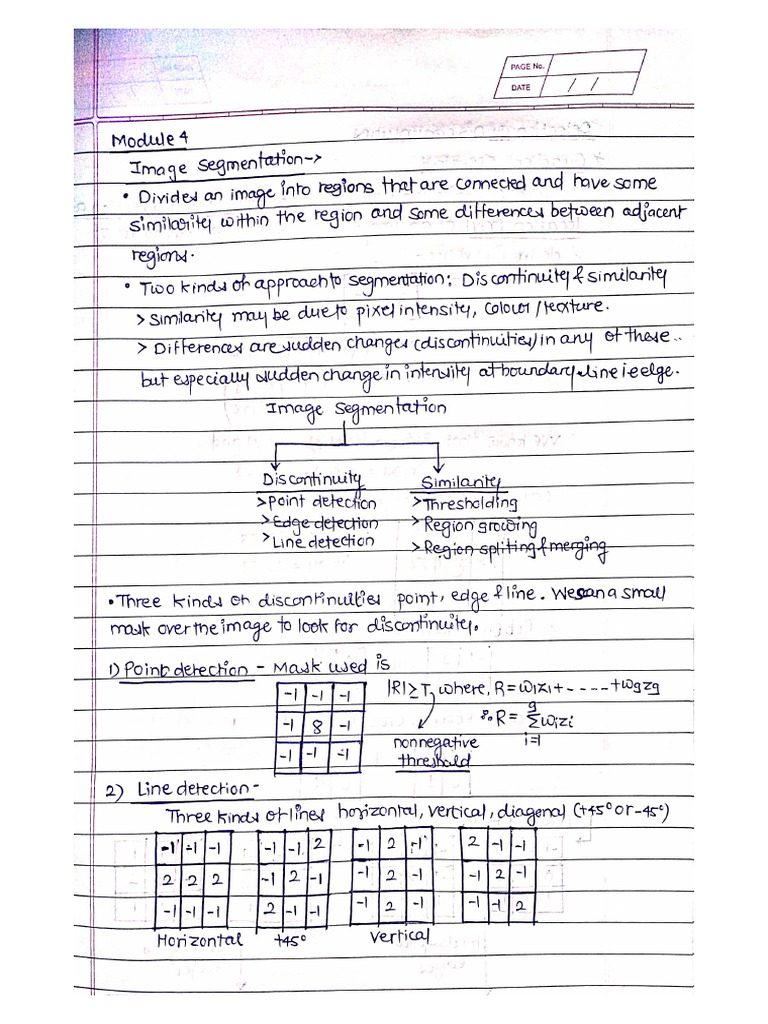 PAGE No.
DATE / /
Module 4
Image segmentation->
• Divides an image into regions that are connected and have some
similarity within the region and some differences between adjacent
regions.
• Two kinds of approach to segmentation: Discontinuity & similarity
> Similarity may be due to pixel intensity, colour/texture.
> Differences are sudden changes (discontinuities) in any of these..
but especially sudden change in intensity at boundary line i.e edge.
Image segmentation
Discontinuity Similarity
>Point detection >Thresholding
>Edge detection >Region growing
>Line detection >Region spliting & merging
• Three kinds of discontinuities point, edge & line. We scan a small
mask over the image to look for discontinuity.
1) Point detection - Mask used is
-1 -1 -1 |R| ≥ T, where, R = w1z1 + ----- + w9z9
-1 8 -1 ∴ R = 9Σi=1 wizi
-1 -1 -1 nonnegative
threshold
2) Line detection -
Three kinds of lines horizontal, vertical, diagonal (+45° or -45°)
-1 -1 -1 -1 -1 2 -1 2 -1 2 -1 -1
2 2 2 -1 2 -1 -1 2 -1 -1 2 -1
-1 -1 -1 2 -1 -1 -1 2 -1 -1 -1 2
Horizontal +45° Vertical